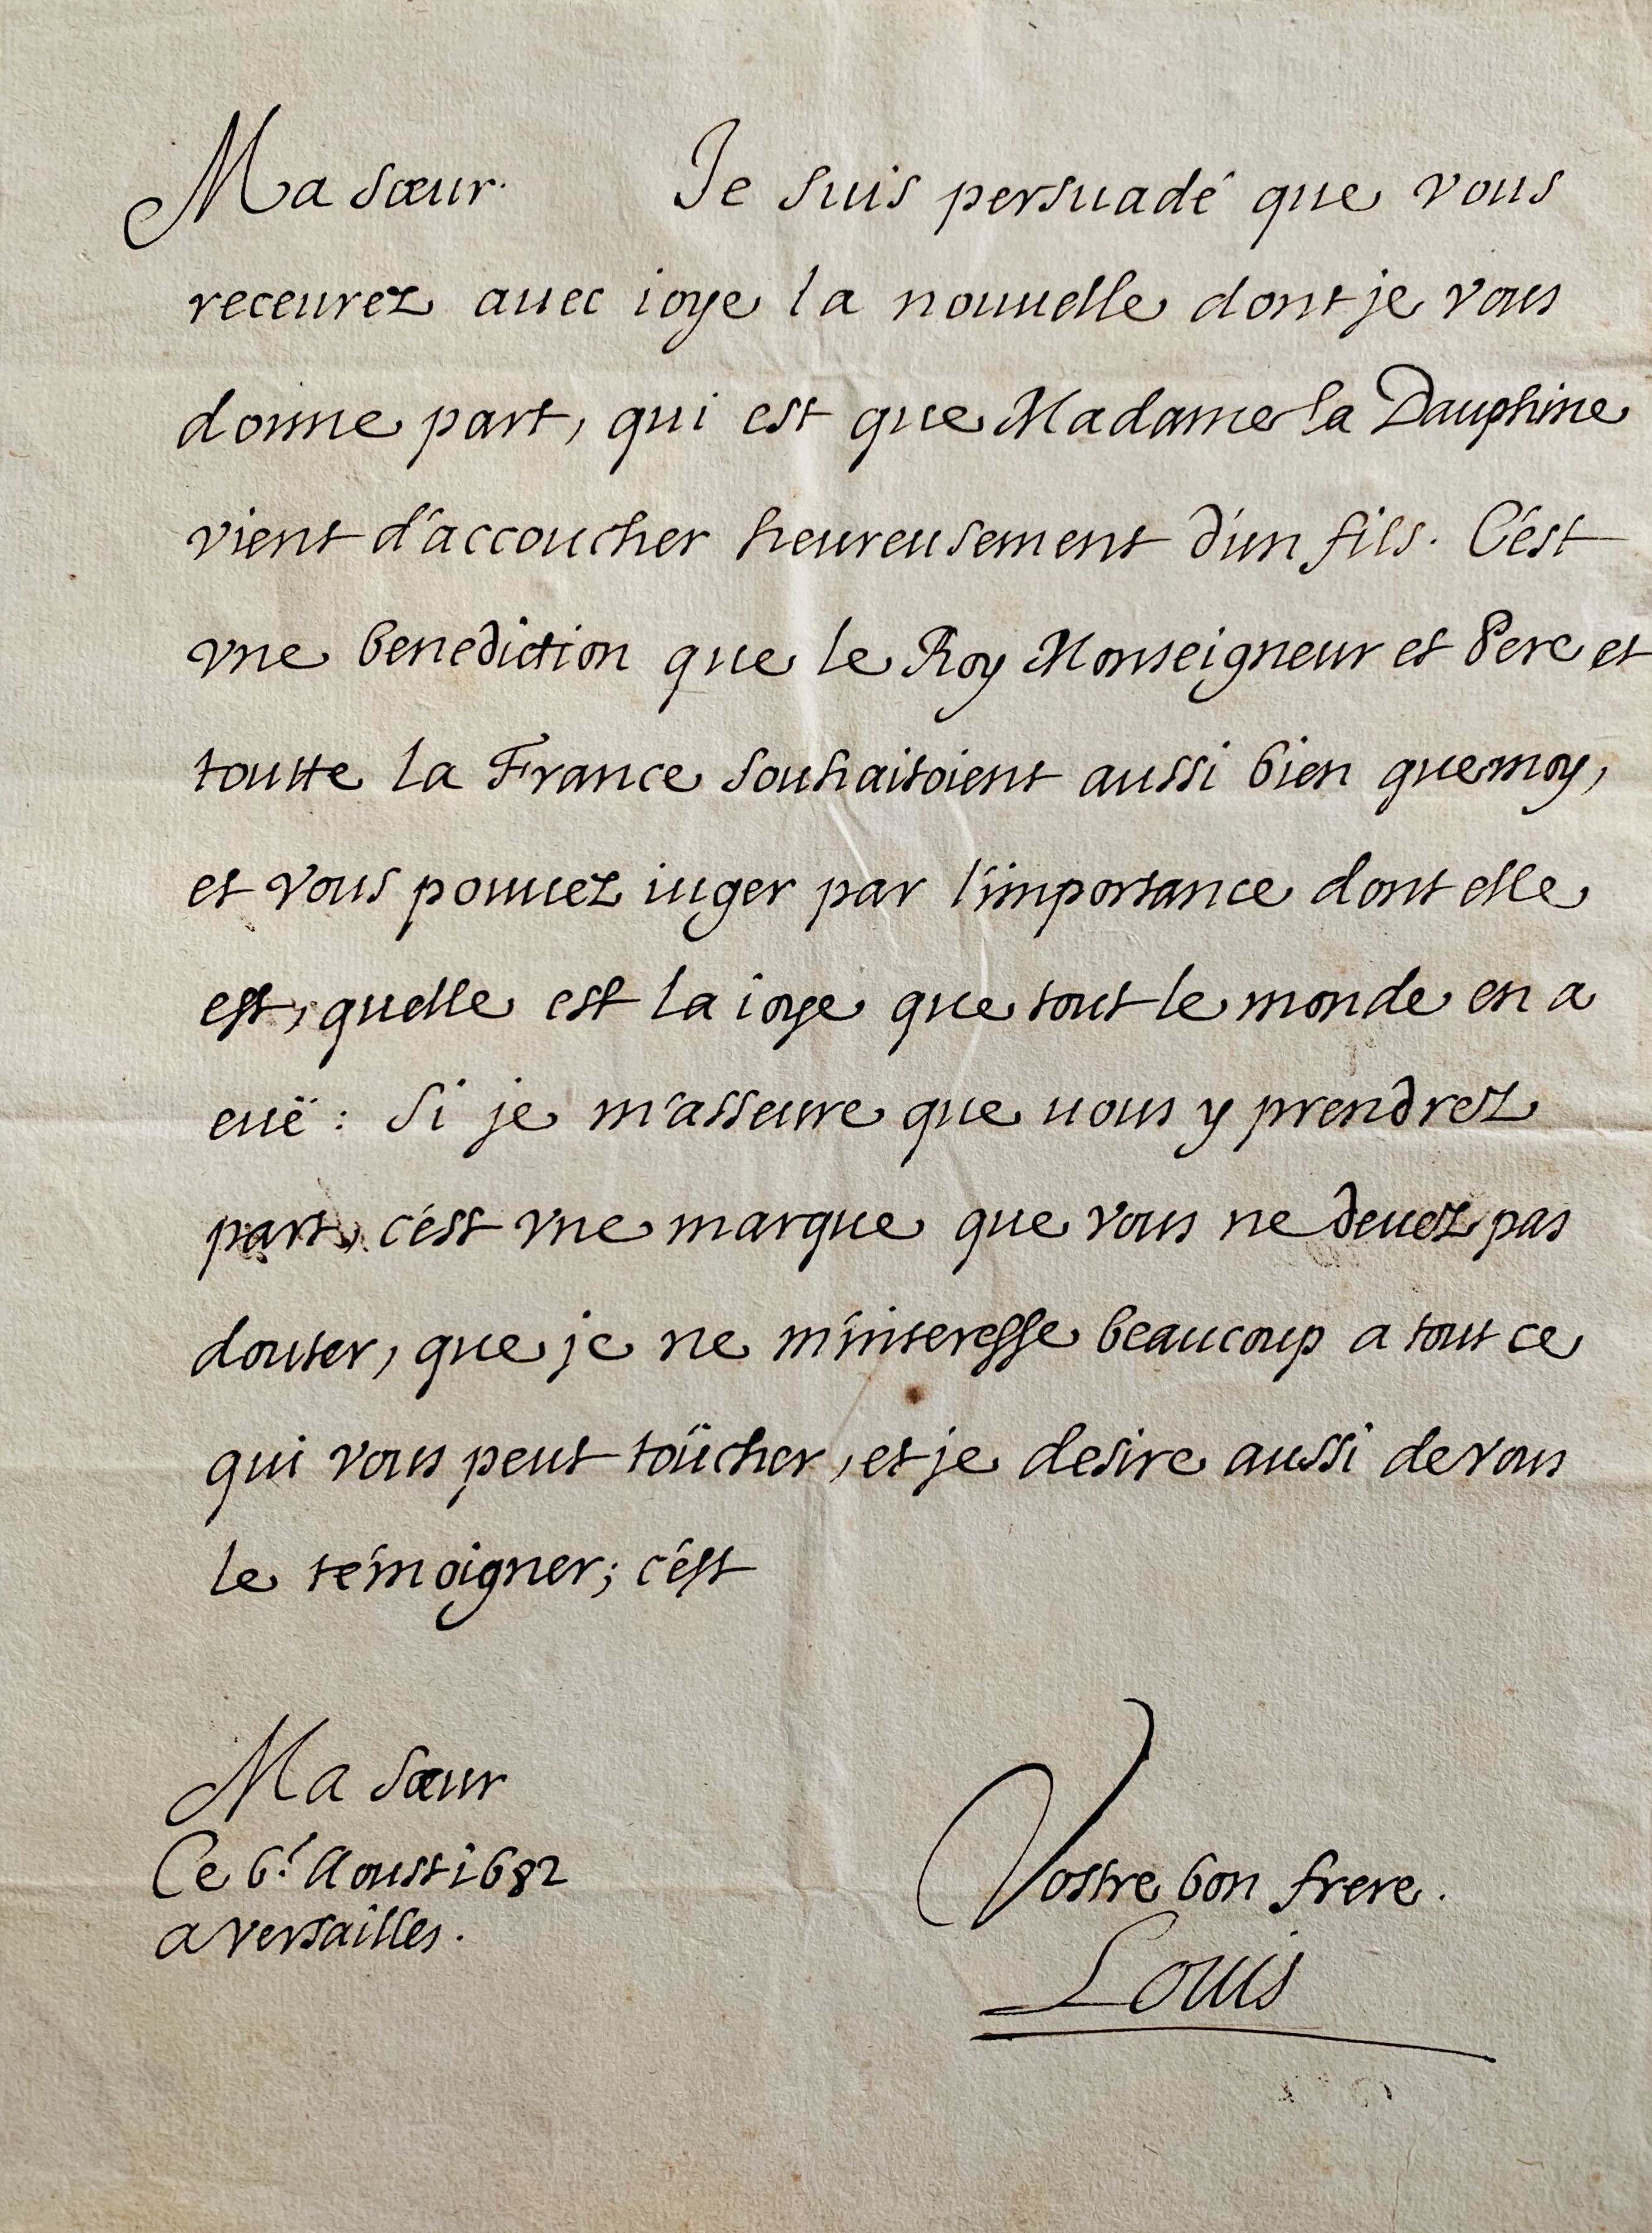 Ma sœur. Je suis persuadé que vous
receurez auec ioye la nouuelle dont je vous
donne part, qui est que Madame la Dauphine
vient d'accoucher heureusement d'un fils. C'est
vne benediction que le Roy Monseigneur et Pere et
toutte la France souhaitoient aussi bien que moy,
et vous pouuez iuger par l'importance dont elle
est, quelle est la ioye que tout le monde en a
euë : Si je m'asseure que uous y prendrez
part, c'est vne marque que vous ne deuez pas
douter, que je ne m'interesse beaucoup a tout ce
qui vous peut toücher, et je desire aussi de vous
le témoigner; c'est
Ma sœur
Ce 6.e Aoust 1682
a versailles.
Vostre bon frere.
Louis